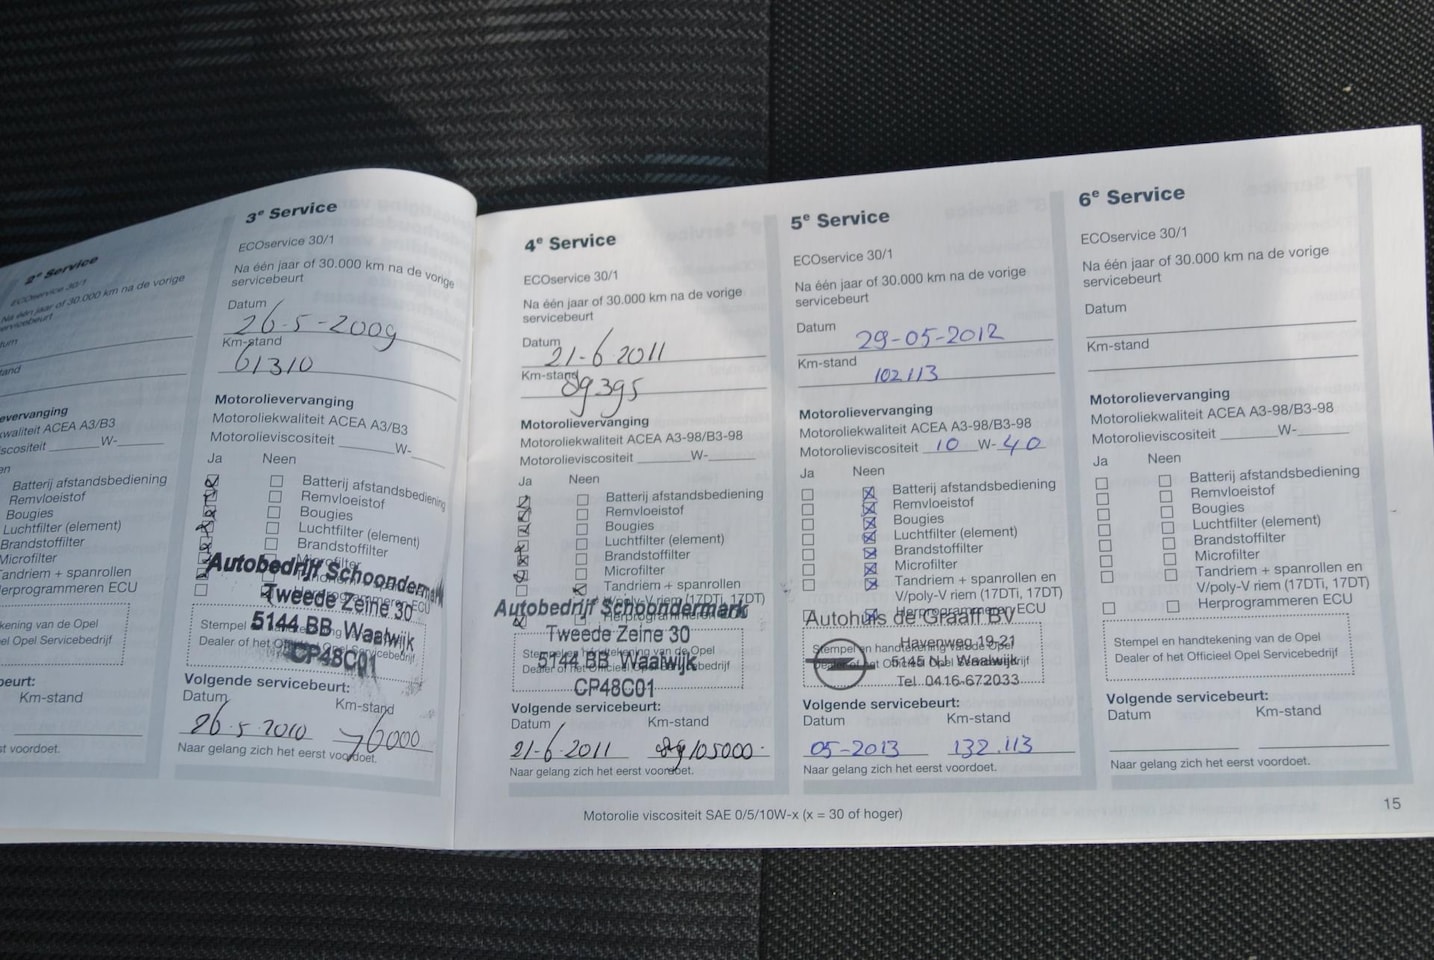 2e Service
ECOservice 30/1
Na één jaar of 30.000 km na de vorige
servicebeurt
Batterij afstandsbediening
Remvloeistof
Bougies
Luchtfilter (element)
Brandstoffilter
Microfilter
Tandriem + spanrollen
Km-stand
3e Service
ECOservice 30/1
Na één jaar of 30.000 km na de vorige
servicebeurt
Datum
26-5-2009
Km-stand
61310
Motorolievervanging
Motoroliekwaliteit ACEA A3/B3
Motorolieviscositeit W-
Ja Neen
Batterij afstandsbediening
Remvloeistof
Bougies
Luchtfilter (element)
Brandstoffilter
Microfilter
Autobedrijf Schoondermark
Tweede Zeine 30
5144 BB Waalwijk
CP48C01
Volgende servicebeurt:
Datum Km-stand
26-5-2010 76000
Naar gelang zich het eerst voordoet.
4e Service
ECOservice 30/1
Na één jaar of 30.000 km na de vorige
servicebeurt
Datum
21-6-2011
Km-stand
89395
Motorolievervanging
Motoroliekwaliteit ACEA A3-98/B3-98
Motorolieviscositeit W-
Ja Neen
Batterij afstandsbediening
Remvloeistof
Bougies
Luchtfilter (element)
Brandstoffilter
Microfilter
Tandriem + spanrollen
V/poly-V riem (17DTi, 17DT)
Autobedrijf Schoondermark
Tweede Zeine 30
5144 BB Waalwijk
CP48C01
Volgende servicebeurt:
Datum Km-stand
21-6-2011 105000
Naar gelang zich het eerst voordoet.
5e Service
ECOservice 30/1
Na één jaar of 30.000 km na de vorige
servicebeurt
Datum
29-05-2012
Km-stand
102113
Motorolievervanging
Motoroliekwaliteit ACEA A3-98/B3-98
Motorolieviscositeit 10 W-40
Ja Neen
Batterij afstandsbediening
Remvloeistof
Bougies
Luchtfilter (element)
Brandstoffilter
Microfilter
Tandriem + spanrollen en
V/poly-V riem (17DTi, 17DT)
Herprogrammeren ECU
Autohuis de Graaff BV
Havenweg 19-21
5145 NJ Waalwijk
Tel. 0416-672033
Volgende servicebeurt:
Datum Km-stand
05-2013 132.113
Naar gelang zich het eerst voordoet.
6e Service
ECOservice 30/1
Na één jaar of 30.000 km na de vorige
servicebeurt
Datum
Km-stand
Motorolievervanging
Motoroliekwaliteit ACEA A3-98/B3-98
Motorolieviscositeit W-
Ja Neen
Batterij afstandsbediening
Remvloeistof
Bougies
Luchtfilter (element)
Brandstoffilter
Microfilter
Tandriem + spanrollen en
V/poly-V riem (17DTi, 17DT)
Herprogrammeren ECU
Stempel en handtekening van de Opel
Dealer of het Officieel Opel Servicebedrijf
Volgende servicebeurt:
Datum Km-stand
Naar gelang zich het eerst voordoet.
Motorolie viscositeit SAE 0/5/10W-x (x = 30 of hoger)
15